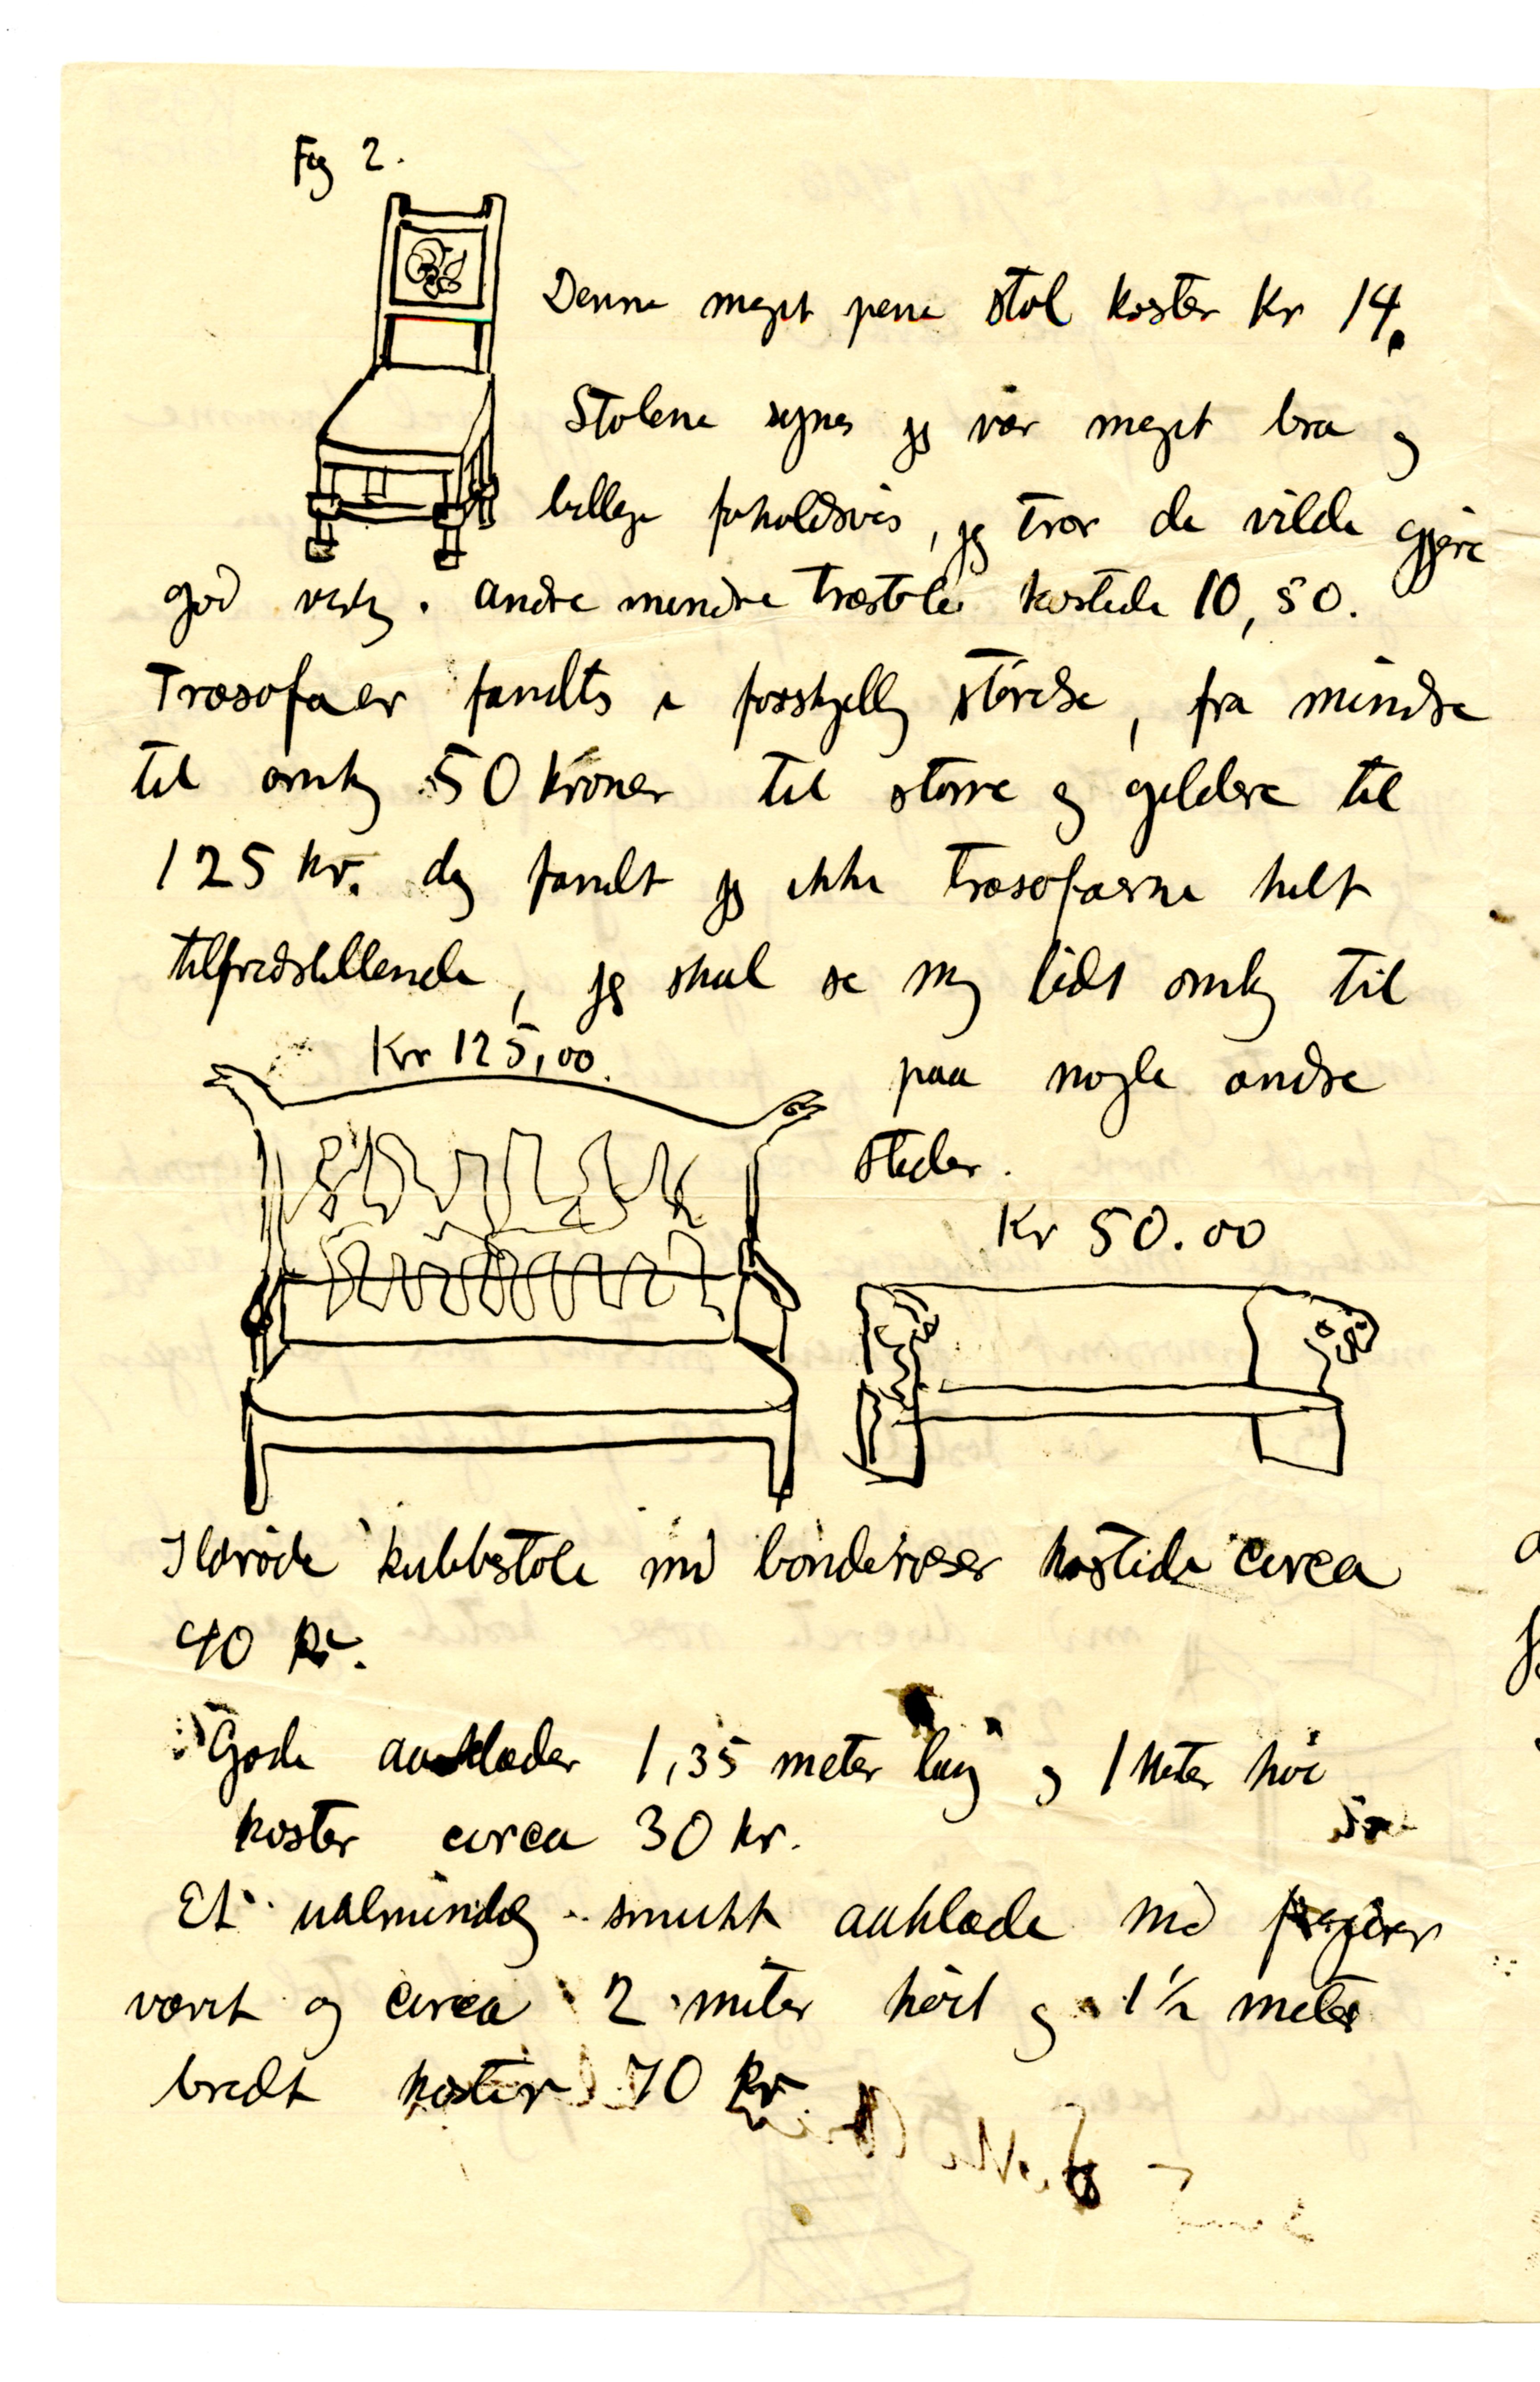 Fig 2.
Denne meget pene stol koster Kr 14.
Stolene synes jeg var meget bra og
billige forholdsvis, jeg tror de vilde gjøre
god virkg. andre mindre træstole kostede 10,50.
Træsofaer fandts i forskjellig størelse, fra mindre
til omkg 50 Kroner til større og gildere til
125 kr. dog fandt jeg ikke træsofaerne helt
tilfredstillende, jeg skal se mig lidt omkg til
Kr 125,00.
paa nogle andre
steder.
Kr 50.00
Ildrøde kubbstole med bonderoser kostede circa
40 kr.
Gode aaklæder 1,35 meter lang og 1 Meter høi
koster circa 30 kr.
Et ualmindelig smukt aaklæde med figurer
vævet og circa 2 meter høit og 1½ meter
bredt koster 70 kr